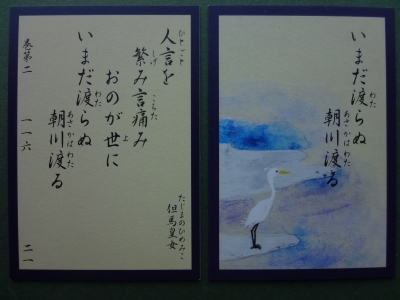 人言を
繁み言痛み
おのが世に
いまだ渡らぬ
朝川渡る
但馬皇女
たじまのひめみこ
巻第二
一一六
二一
いまだ渡らぬ
朝川渡る